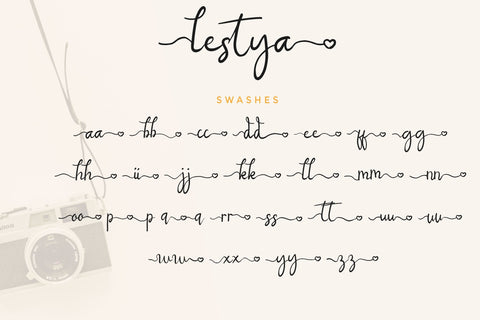 lestya
SWASHES
aa bb cc dd ee ff gg
hh ii jj kk ll mm nn
oo p p q q rr ss tt uu uu
ww xx yy zz